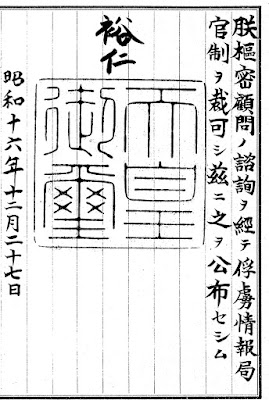 朕樞密顧問ノ諮詢ヲ經テ俘虜情報局
官制ヲ裁可シ茲ニ之ヲ公布セシム
裕仁
天皇
御璽
昭和十六年十二月二十七日